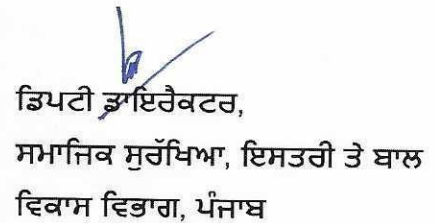 ਡਿਪਟੀ ਡਾਇਰੈਕਟਰ,
ਸਮਾਜਿਕ ਸੁਰੱਖਿਆ, ਇਸਤਰੀ ਤੇ ਬਾਲ
ਵਿਕਾਸ ਵਿਭਾਗ, ਪੰਜਾਬ